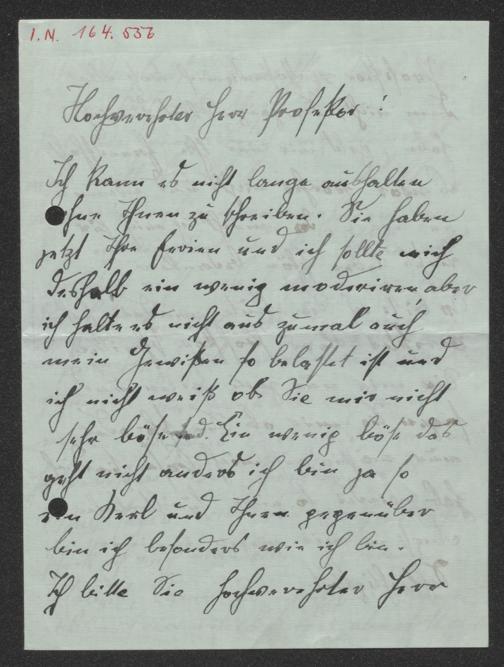 I.N. 164.556
Hochverehrter Herr Professor!
Ich kann es nicht lange aushalten
ohne Ihnen zu schreiben. Sie haben
jetzt Ihre Ferien und ich sollte mich
deshalb ein wenig moderiren, aber
ich halte es nicht aus zumal auch
mein Gewißen so belastet ist und
ich nicht weiß ob Sie mir nicht
sehr böse sind. Ein wenig böse das
geht nicht anders ich bin ja so
ein Kerl und Ihnen gegenüber
bin ich besonders wie ich bin.
Ich bitte Sie hochverehrter Herr